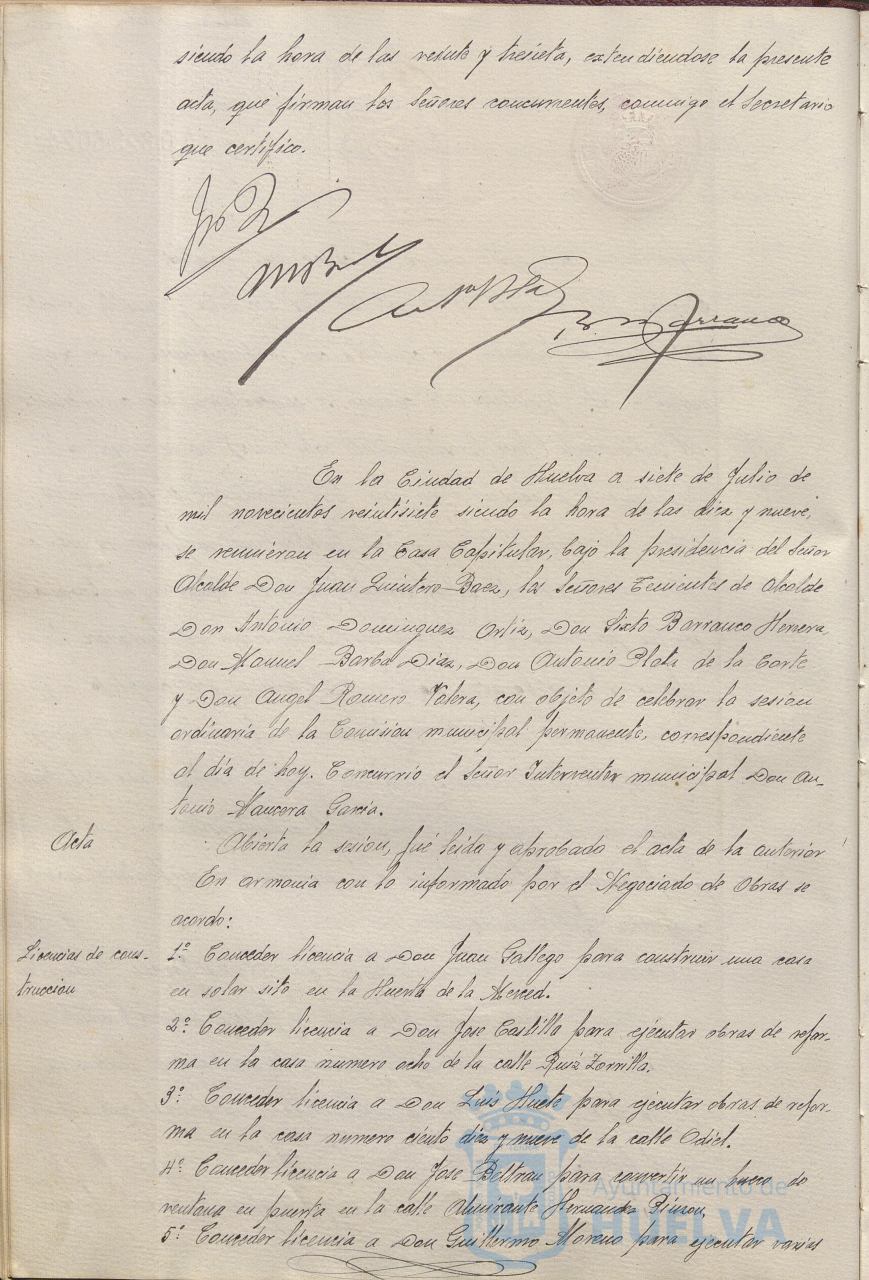 siendo la hora de las veinte y treinta, extendiendose la presente
acta, que firman los Señores concurrentes, conmigo el Secretario
que certifico.
En la Ciudad de Huelva a siete de Julio de
mil novecientos veintisiete siendo la hora de las diez y nueve,
se reunieron en la Casa Capitular, bajo la presidencia del Señor
Alcalde Don Juan Quintero Baez, los Señores Tenientes de Alcalde
Don Antonio Dominguez Ortiz, Don Sixto Barranco Herrera,
Don Manuel Barba Diaz, Don Antonio Plata de la Corte
y Don Angel Romero Valera, con objeto de celebrar la sesion
ordinaria de la Comision municipal permanente, correspondiente
al día de hoy. Concurrió el Señor Interventor municipal Don An-
tonio Mancera Garcia.
Acta
Abierta la sesion, fué leida y aprobada el acta de la anterior
En armonia con lo informado por el Negociado de Obras se
acordo:
Licencias de cons-
truccion
1º Conceder licencia a Don Juan Gallego para construir una casa
en solar sito en la Huerta de la Merced.
2º Conceder licencia a Don Jose Castilla para ejecutar obras de refor-
ma en la casa numero ocho de la calle Ruiz Zorrilla.
3º Conceder licencia a Don Luis Hueto para ejecutar obras de refor-
ma en la casa numero ciento diez y nueve de la calle Odiel.
4º Conceder licencia a Don Jose Beltran para convertir un hueco de
ventana en puerta en la calle Almirante Hernandez Pinzon,
5º Conceder licencia a Don Guillermo Moreno para ejecutar varias
Ayuntamiento de
HUELVA